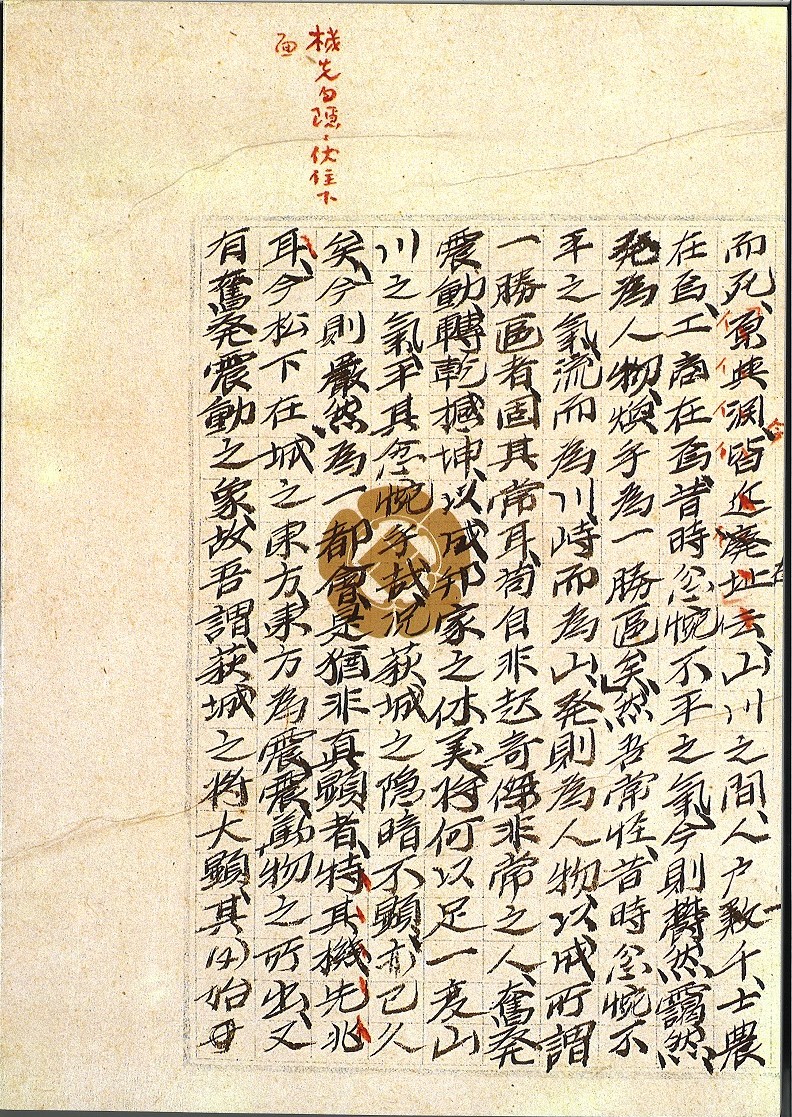 機先句隱、伏住下
而死、與涙皆近廢址云、山川之間、人户數千、士農
在焉、工商在焉、昔時忿惋不平之氣、今則欝然靄然、
発為人物、煥乎為一勝區矣、然吾常怪、昔時忿惋不
平之氣、流而為川、峙而為山、発則為人物、以成所謂
一勝區者、固其常耳、苟自非起奇傑非常之人、奮発
震動、轉乾撼坤、以成邦家之休美、將何以足一变山
川之氣、平其忿惋乎哉、况萩城之隐暗不顯、亦已久
矣、今則嚴然為一都會、是猶非真顯者、特其機先兆
耳、今松下在城之東方、東方為震、震動物之所出、又
有奮発震動之象、故吾謂、萩城之將大顯、其必始